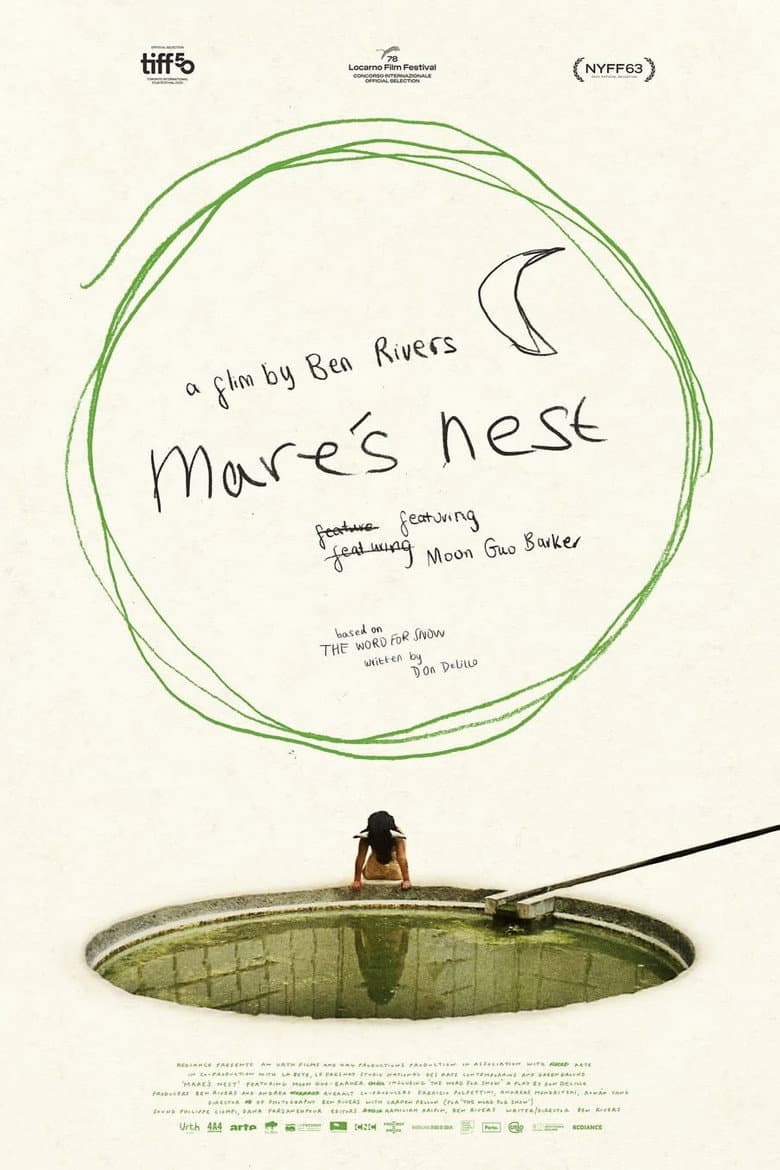 OFFICIAL SELECTION
tiff50
TORONTO INTERNATIONAL
FILM FESTIVAL 2025
78
Locarno Film Festival
CONCORSO INTERNAZIONALE
OFFICIAL SELECTION
NYFF63
2025 OFFICIAL SELECTION
a film by Ben Rivers
Mare's nest
feature featuring
featuring Moon Guo Barker
based on
THE WORD FOR SNOW
written by
Don DeLillo
REDIANCE PRESENTS AN URTH FILMS AND PRODUCTIONS PRODUCTION IN ASSOCIATION WITH ARTE
IN CO-PRODUCTION WITH LA BÊTE, LE FRESNOY STUDIO NATIONAL DES ARTS CONTEMPORAINS AND GREENGROUND
'MARE'S NEST' FEATURING MOON GUO-BARKER INCLUDING 'THE WORD FOR SNOW' A PLAY BY DON DELILLO
PRODUCERS BEN RIVERS AND ANDREA QUERALT CO-PRODUCERS FABRIZIO POLPETTINI, ANDREAS MENDRITZKI, AONAN YANG
DIRECTOR OF PHOTOGRAPHY BEN RIVERS WITH CARMEN PELLON (FOR 'THE WORD FOR SNOW')
SOUND PHILIPPE CIOMPI, EDITORS ARMILIAH ARIPIN, BEN RIVERS WRITER/DIRECTOR BEN RIVERS
Urth 4A4 arte CNC REDIANCE